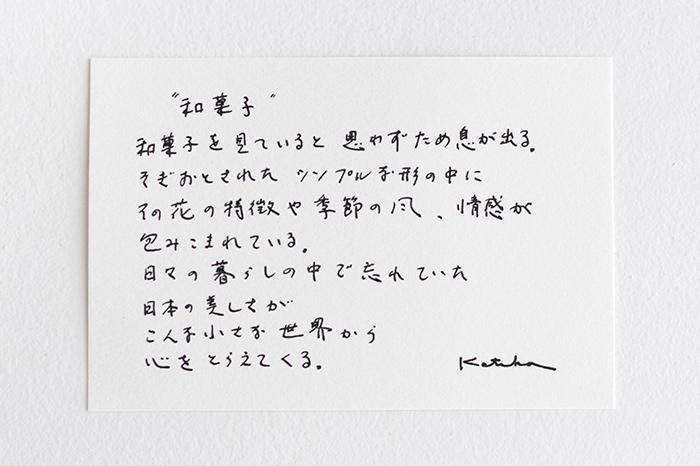 "和菓子"
和菓子を見ていると 思わずため息が出る。
そぎおとされた シンプルな形の中に
その花の特徴や季節の風、情感が
包みこまれている。
日々の暮らしの中で忘れていた
日本の美しさが
こんな小さな世界から
心をとらえてくる。